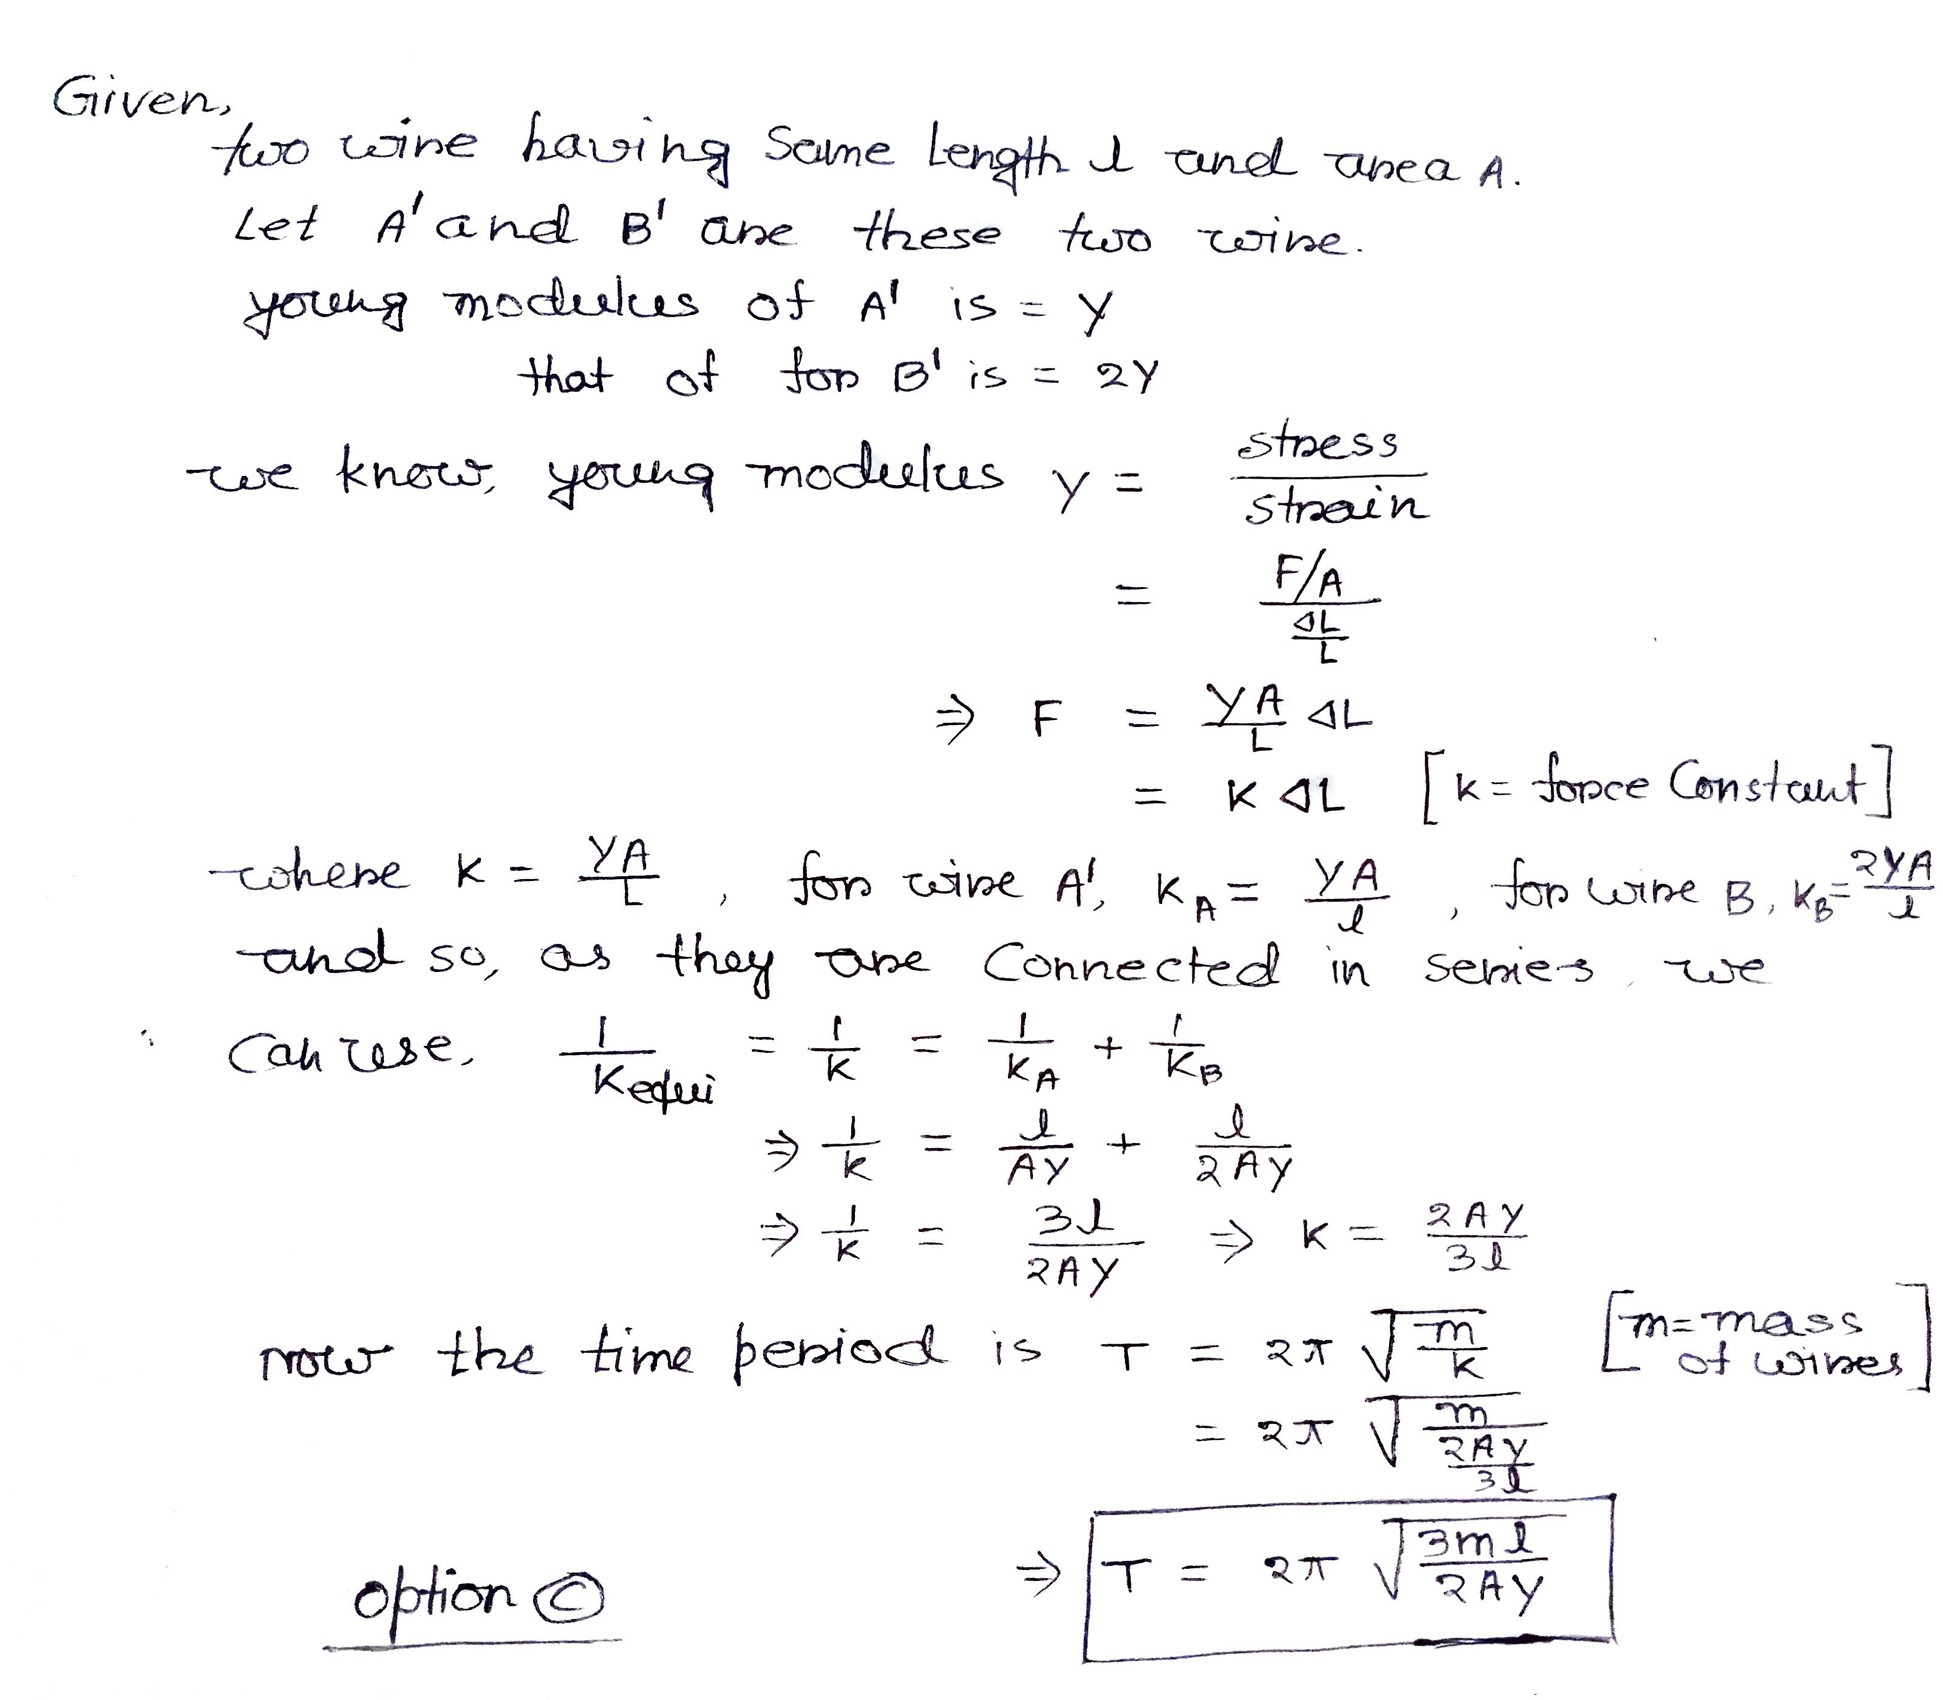 Given,
two wire having Same Length l and area A.
Let A' and B' are these two wire.
young modulus of A' is = Y
that of for B' is = 2Y
we know, young modulus Y = stress / strain
= (F/A) / (ΔL/L)
⇒ F = YA/L ΔL
= K ΔL [k = force Constant]
where K = YA/L , for wire A', K_A = YA/l , for wire B, K_B = 2YA/l
and so, as they are Connected in series, we
Can use, 1/Kequi = 1/K = 1/K_A + 1/K_B
⇒ 1/k = l/AY + l/2AY
⇒ 1/K = 3l/2AY ⇒ K = 2AY/3l
now the time period is T = 2π √(m/K) [m = mass of wires]
= 2π √(m/(2AY/3l))
⇒ T = 2π √(3ml/2AY)
option ©